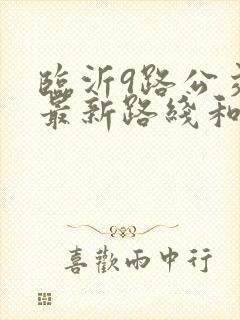 临沂9路公交
最新路线和
喜歡雨中行